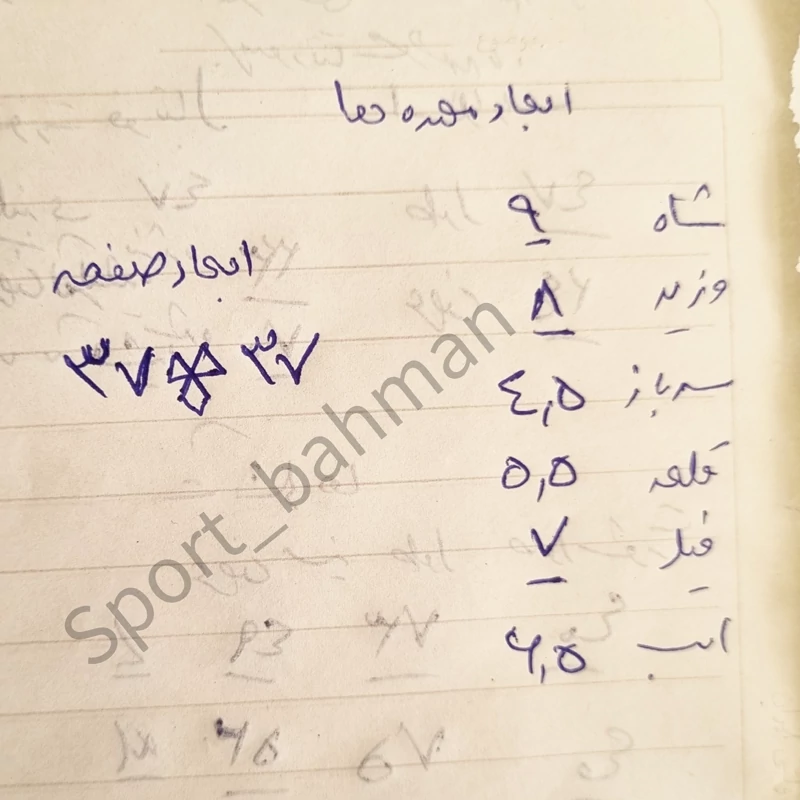 ابعاد مهره ها
شاه ۹
وزیر ۸
سرباز ۴,۵
قلعه ۵,۵
فیل ۷
اسب ۶,۵
ابعاد صفحه
۳۷ * ۳۷
Sport_bahman